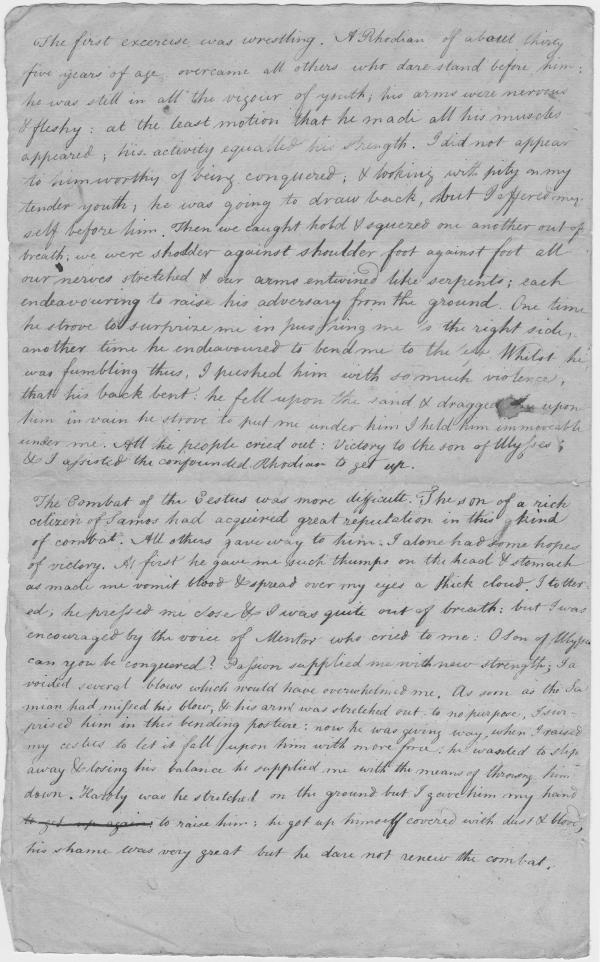 The first excercise was wrestling. A Rhodian of about thirty
five years of age, overcame all others who dare stand before him;
he was still in all the vigour of youth; his arms were nervous
& fleshy: at the least motion that he made all his muscles
appeared; his activity equalled his strength. I did not appear
to him worthy of being conquered; & looking with pity on my
tender youth, he was going to draw back, but I offered my-
self before him. Then we caught hold & squezed one another out of
breath; we were sholder against shoulder foot against foot all
our nerves stretched & our arms entwined like serpents; each
endeavouring to raise his adversary from the ground. One time
he strove to surprize me in me the right side,
another time he endeavoured to bend me to the Whilst he
was fumbling thus, I pushed him with so much violence,
that his back bent: he fell upon the sand & dragged upon
him in vain he strove to put me under him I held him immoveable
under me. All the people cried out: Victory to the son of Ulysses;
& I assisted the confounded Rhodian to get up.
The Combat of the Cestus was more difficult. The son of a rich
citizen of Samos had acquired great reputation in this kind
of combat. All others gave way to him; I alone had some hopes
of victory. At first he gave me such thumps on the head & stomach
as made me vomit blood & spread over my eyes a thick cloud. I totter-
ed; he pressed me close & I was quite out of breath: but I was
encouraged by the voice of Mentor who cried to me: O son of Ulysses
can you be conquered? Passion supplied me with new strength; I a
voided several blows which would have overwhelmed me. As soon as the Sa
mian had missed his blow, & his arm was stretched out to no purpose, I sur-
prised him in this bending posture: now he was giving way, when I raised
my cestus to let it fall upon him with more force: he wanted to slip
away & losing his balance he supplied me with the means of throwing him
down. Hardly was he stretched on the ground but I gave him my hand
to get up again; to raise him; he got up himself covered with dust & blood,
his shame was very great but he dare not renew the combat.